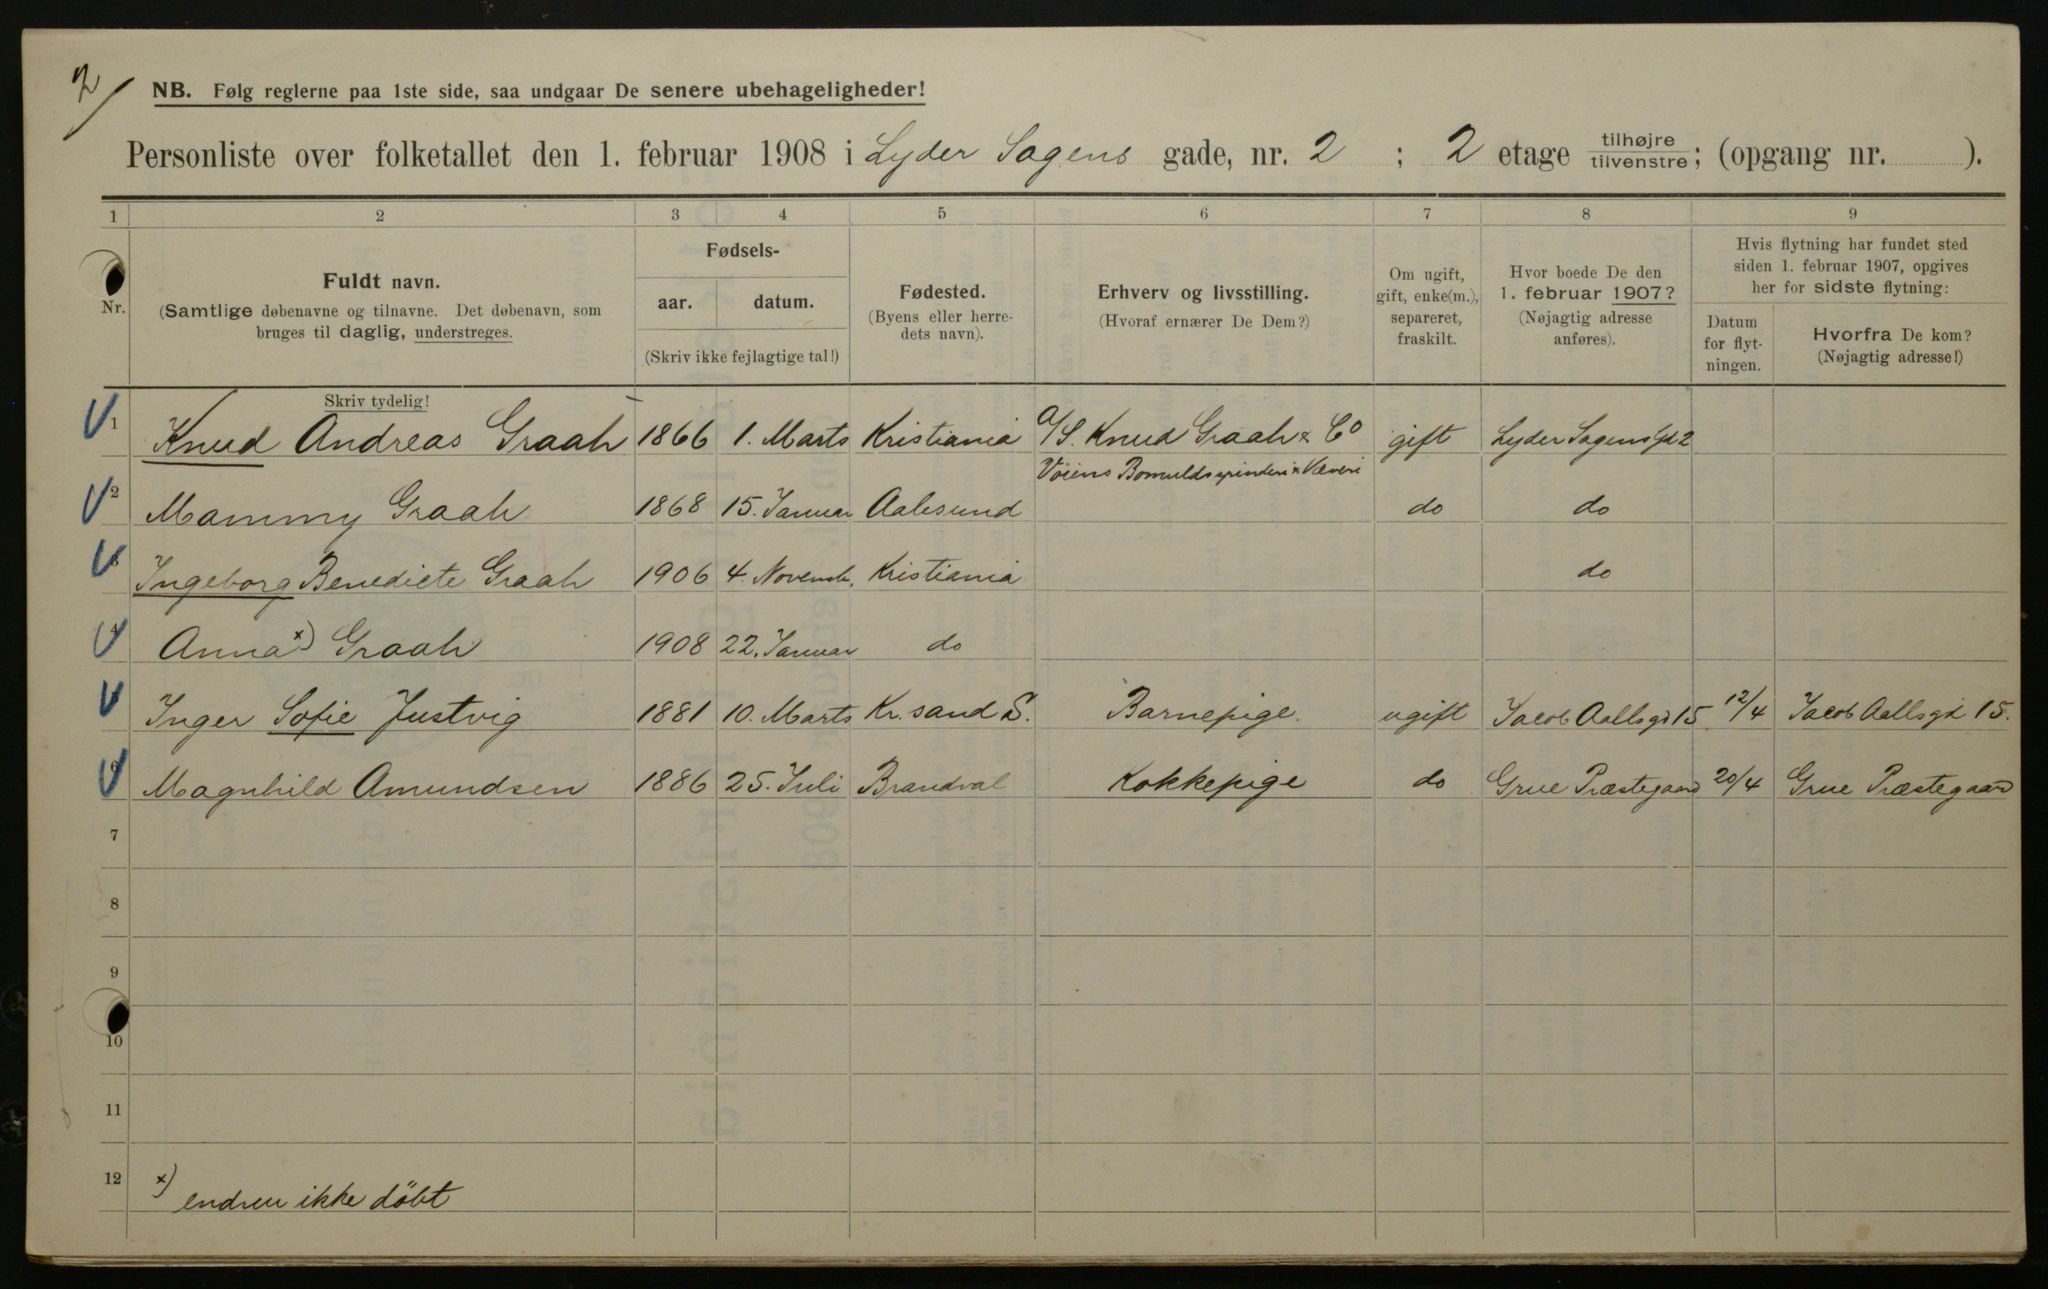 2/
NB. Følg reglerne paa 1ste side, saa undgaar De senere ubehageligheder!
Personliste over folketallet den 1. februar 1908 i Lyder Sagens gade, nr. 2 ; 2 etage tilhøjre/tilvenstre; (opgang nr. ).
1 2 3 4 5 6 7 8 9
Nr.
Fuldt navn.
(Samtlige døbenavne og tilnavne. Det døbenavn, som
bruges til daglig, understreges.
Fødsels-
aar. datum.
(Skriv ikke fejlagtige tal!)
Fødested.
(Byens eller herre-
dets navn).
Erhverv og livsstilling.
(Hvoraf ernærer De Dem?)
Om ugift,
gift, enke(m.),
separeret,
fraskilt.
Hvor boede De den
1. februar 1907?
(Nøjagtig adresse
anføres).
Hvis flytning har fundet sted
siden 1. februar 1907, opgives
her for sidste flytning:
Datum
for flyt-
ningen.
Hvorfra De kom?
(Nøjagtig adresse!)
Skriv tydelig!
1 Knud Andreas Graah 1866 1. Marts Kristiania A/S. Knud Graah & Co gift Lyder Sagens gd 2
Vöiens Bomuldsspinderi & Væveri
2 Mammy Graah 1868 15. Januar Aalesund do do
3 Ingeborg Benedicte Graah 1906 4. Novemb. Kristiania do
4 Anna x) Graah 1908 22. Januar do
5 Inger Sofie Justvig 1881 10. Marts Kr.sand S. Barnepige. ugift Jacob Aallsgd 15 12/4 Jacob Aallsgd 15.
6 Magnhild Amundsen 1886 25. Juli Brandval Kokkepige do Grue Præstegaard 20/4 Grue Præstegaard
7
8
9
10
11
12 x) endnu ikke döbt